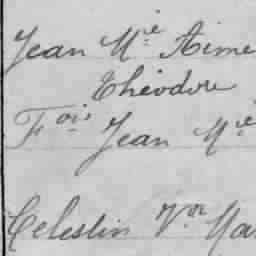 Jean Mie Aimé
Théodore
Fois Jean Mie
Celestin Vor Ma